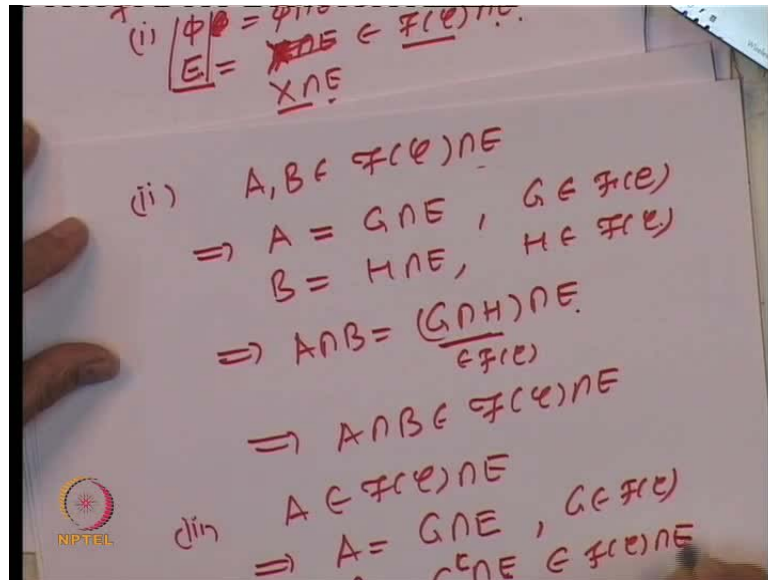 (i) ϕ = ϕ∩E
E = X∩E ∈ F(C)∩E
X∩E
(ii) A, B ∈ F(C)∩E
⇒ A = G∩E , G ∈ F(C)
B = H∩E, H ∈ F(C)
⇒ A∩B = (G∩H)∩E.
∈ F(C)
⇒ A∩B ∈ F(C)∩E
(iii) A ∈ F(C)∩E
⇒ A = G∩E , G ∈ F(C)
Gᶜ∩E ∈ F(C)∩E
NPTEL